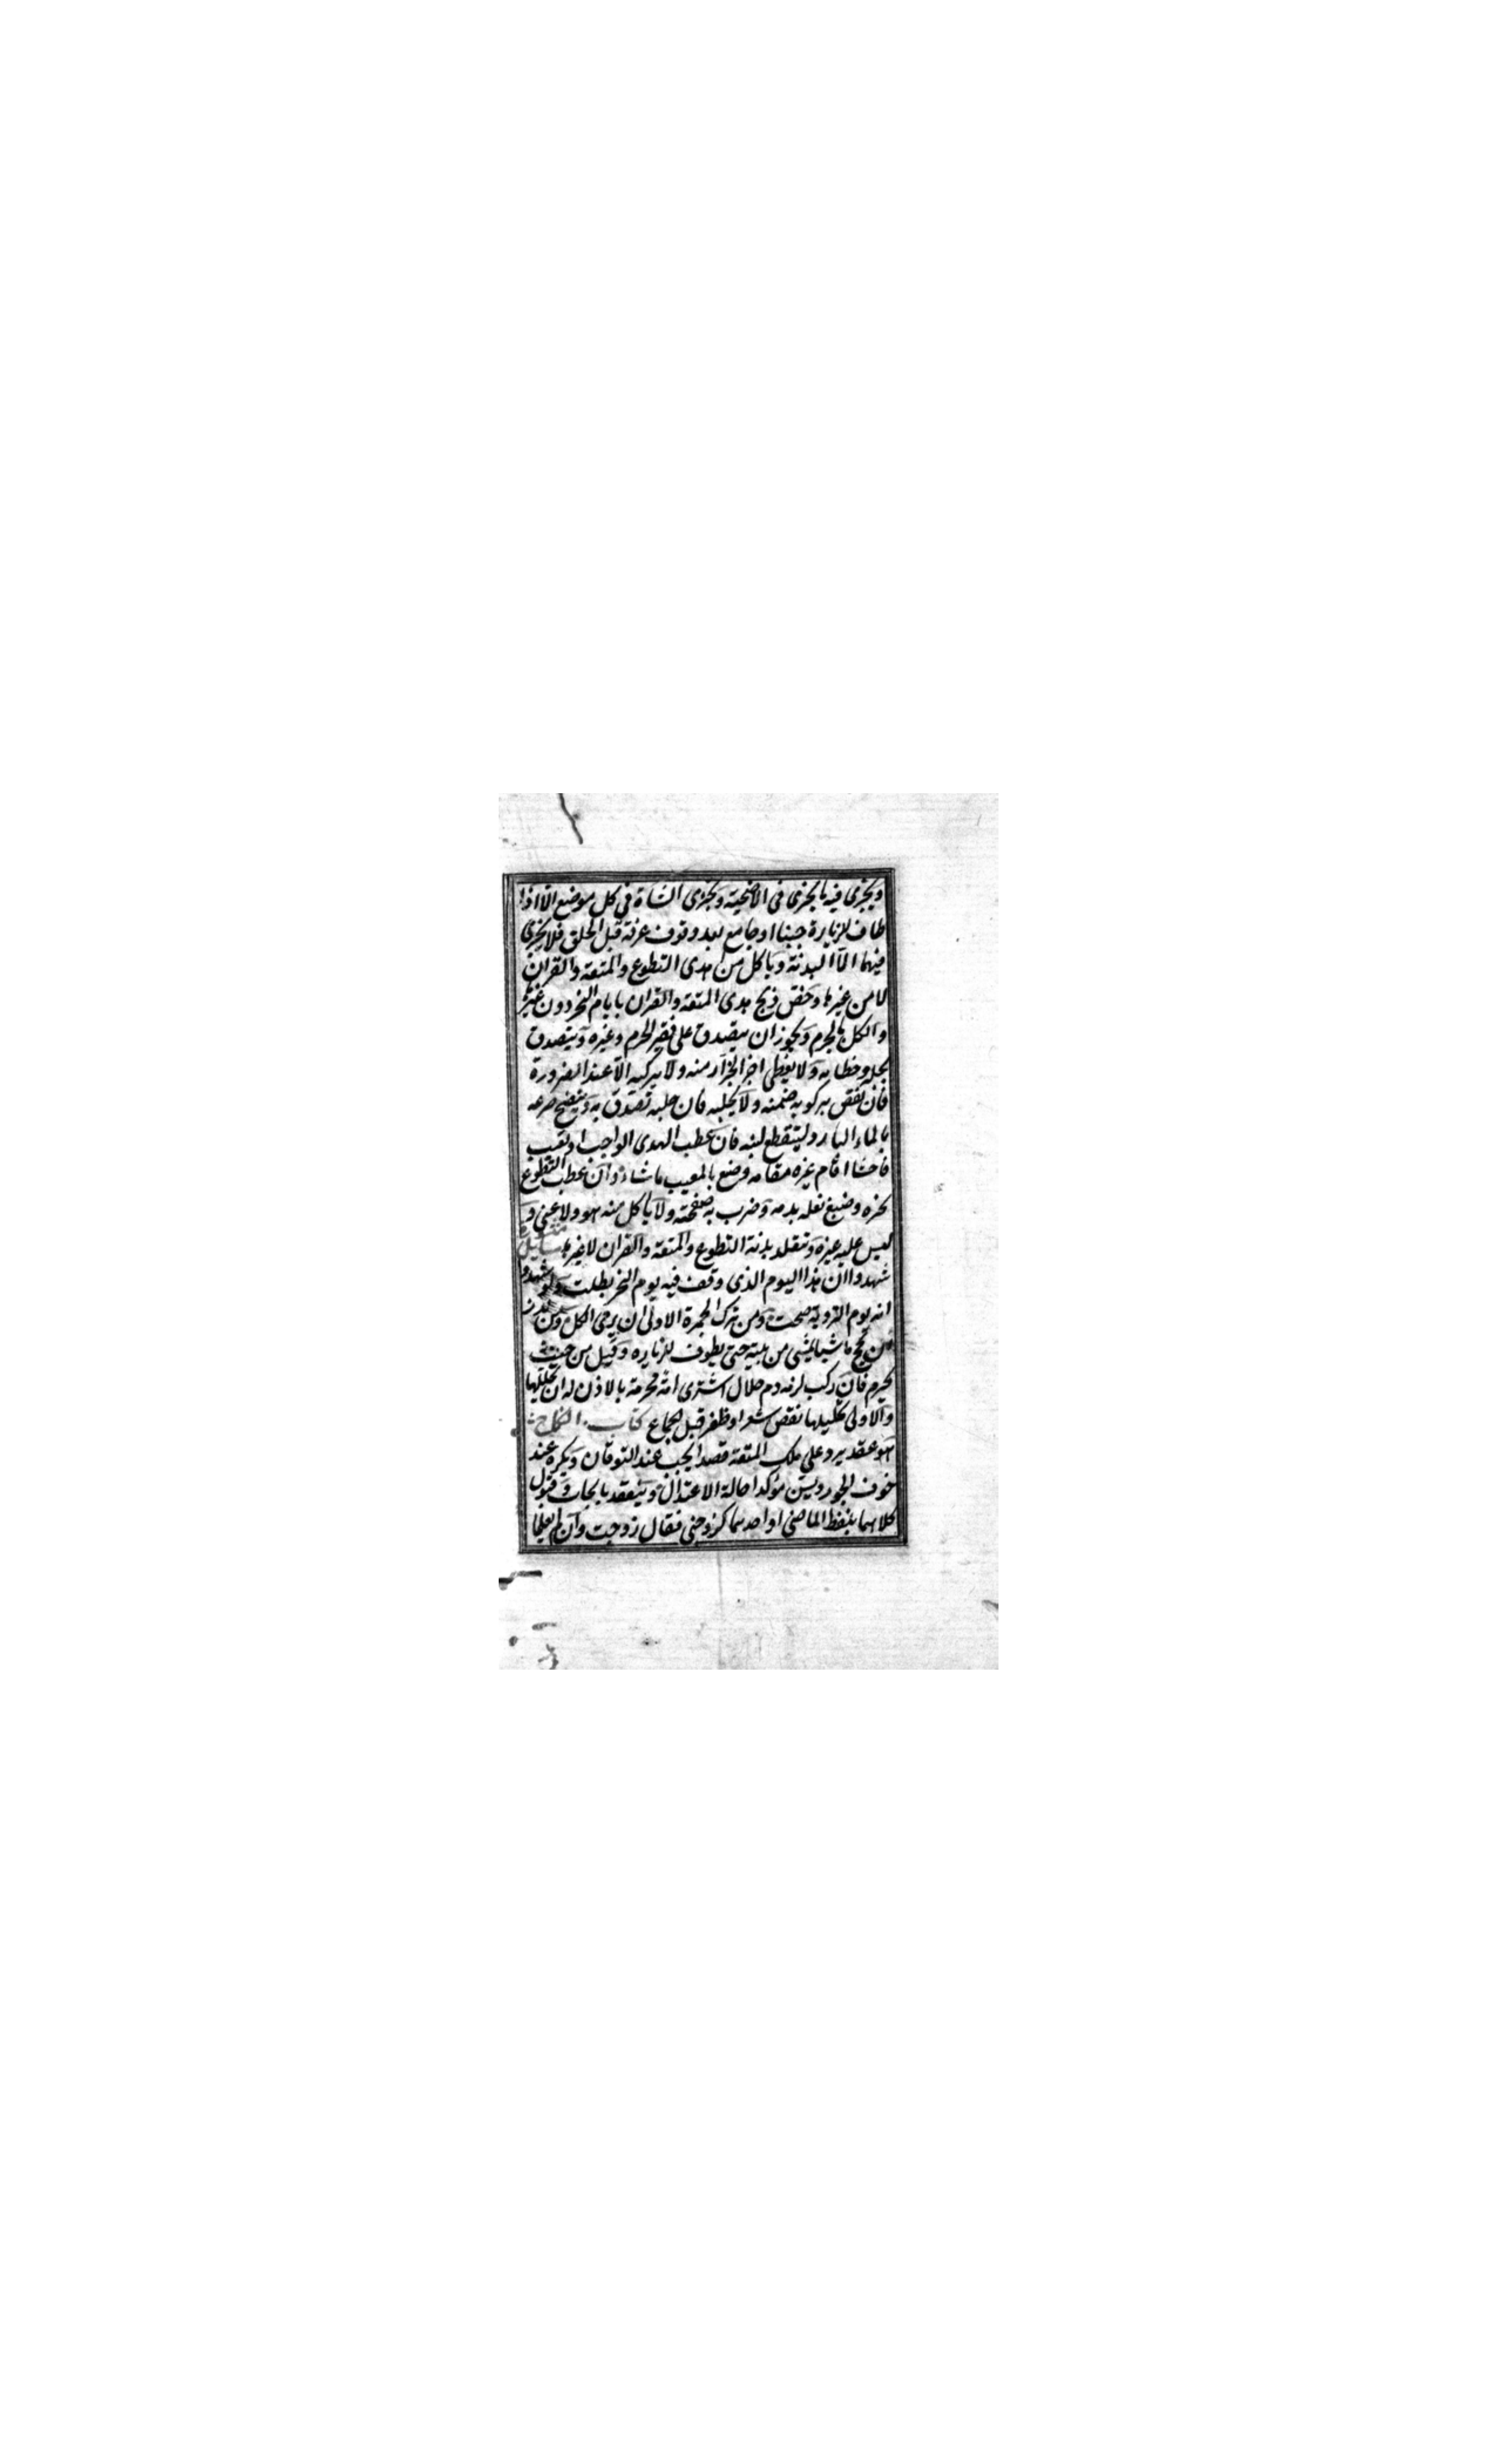 ويجزئ فيه ما يجزئ في الاضحية وتجزئ الشاة في كل موضع الا اذا
طاف للزيارة جنبا او جامع بعد وقوف عرفة قبل الحلق فلا يجزئ
فيهما الا البدنة وياكل من هدى التطوع والمتعة والقران
لا من غيرها وخص ذبح هدى المتعة والقران بايام النحر دون غيرها
والكل بالحرم ويجوز ان يتصدق على فقير الحرم وغيره ويتصدق
بجله وخطامه ولا يعطى اجر الجزار منه ولا يركبه الا عند الضرورة
فان نقص بركوبه ضمنه ولا يحلبه فان حلبه تصدق به وينضح ضرعه
بالماء البارد لينقطع لبنه فان عطب الهدى الواجب او تعيب
فاحشا اقام غيره مقامه وصنع بالمعيب ما شاء وان عطب التطوع
نحره وصبغ نعله بدمه وضرب به صفحته ولا ياكل منه هو ولا غنى و
ليس عليه غيره وتقلد بدنة التطوع والمتعة والقران لا غيرها مسائل منثورة
شهدوا ان هذا اليوم الذى وقف فيه يوم النحر بطلت ولو شهدوا
انه يوم التروية صحت ومن ترك الجمرة الاولى ان يرمى الكل ومن نذر
ان يحج ماشيا يمشى من بيته حتى يطوف للزيارة وقيل من حيث
يحرم فان ركب لزمه دم حلال اشترى امة محرمة بالاذن له ان يحللها
والاولى تحليلها بقص شعر او ظفر قبل الجماع كتاب النكاح
هو عقد يرد على ملك المتعة قصدا يجب عند التوقان ويكره عند
خوف الجور ويسن مؤكدا حالة الاعتدال وينعقد بايجاب وقبول
كلاهما بلفظ الماضى او احدهما كزوجنى فقال زوجت وان لم يعلما